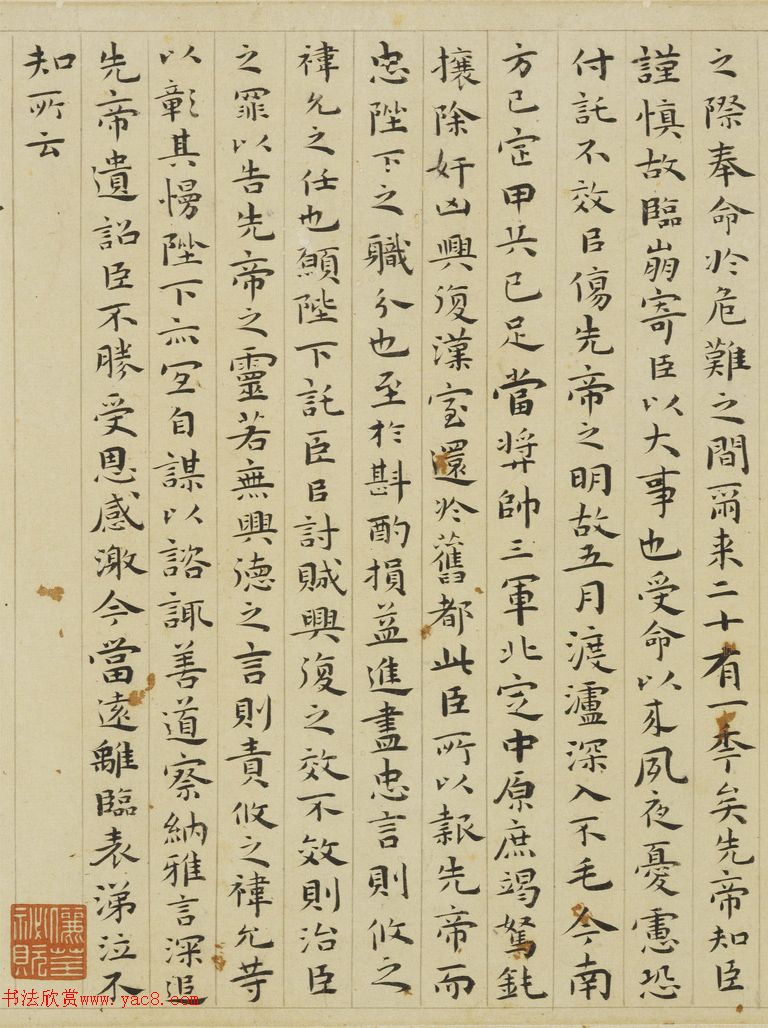 之際奉命於危難之間爾来二十有一秊矣先帝知臣
謹慎故臨崩寄臣以大事也受命以来夙夜憂慮恐
付託不效臣傷先帝之明故五月渡瀘深入不毛今南
方已定甲兵已足當奬帥三軍北定中原庶竭駑鈍
攘除奸凶興復漢室還於舊都此臣所以報先帝而
忠陛下之職分也至於斟酌損益進盡忠言則攸之
禕允之任也願陛下託臣臣討賊興復之效不效則治臣
之罪以告先帝之靈若無興德之言則責攸之禕允等
以彰其慢陛下亦宜自謀以諮諏善道察納雅言深追
先帝遺詔臣不勝受恩感激今當遠離臨表涕泣不
知所云
书法欣赏www.yac8.com